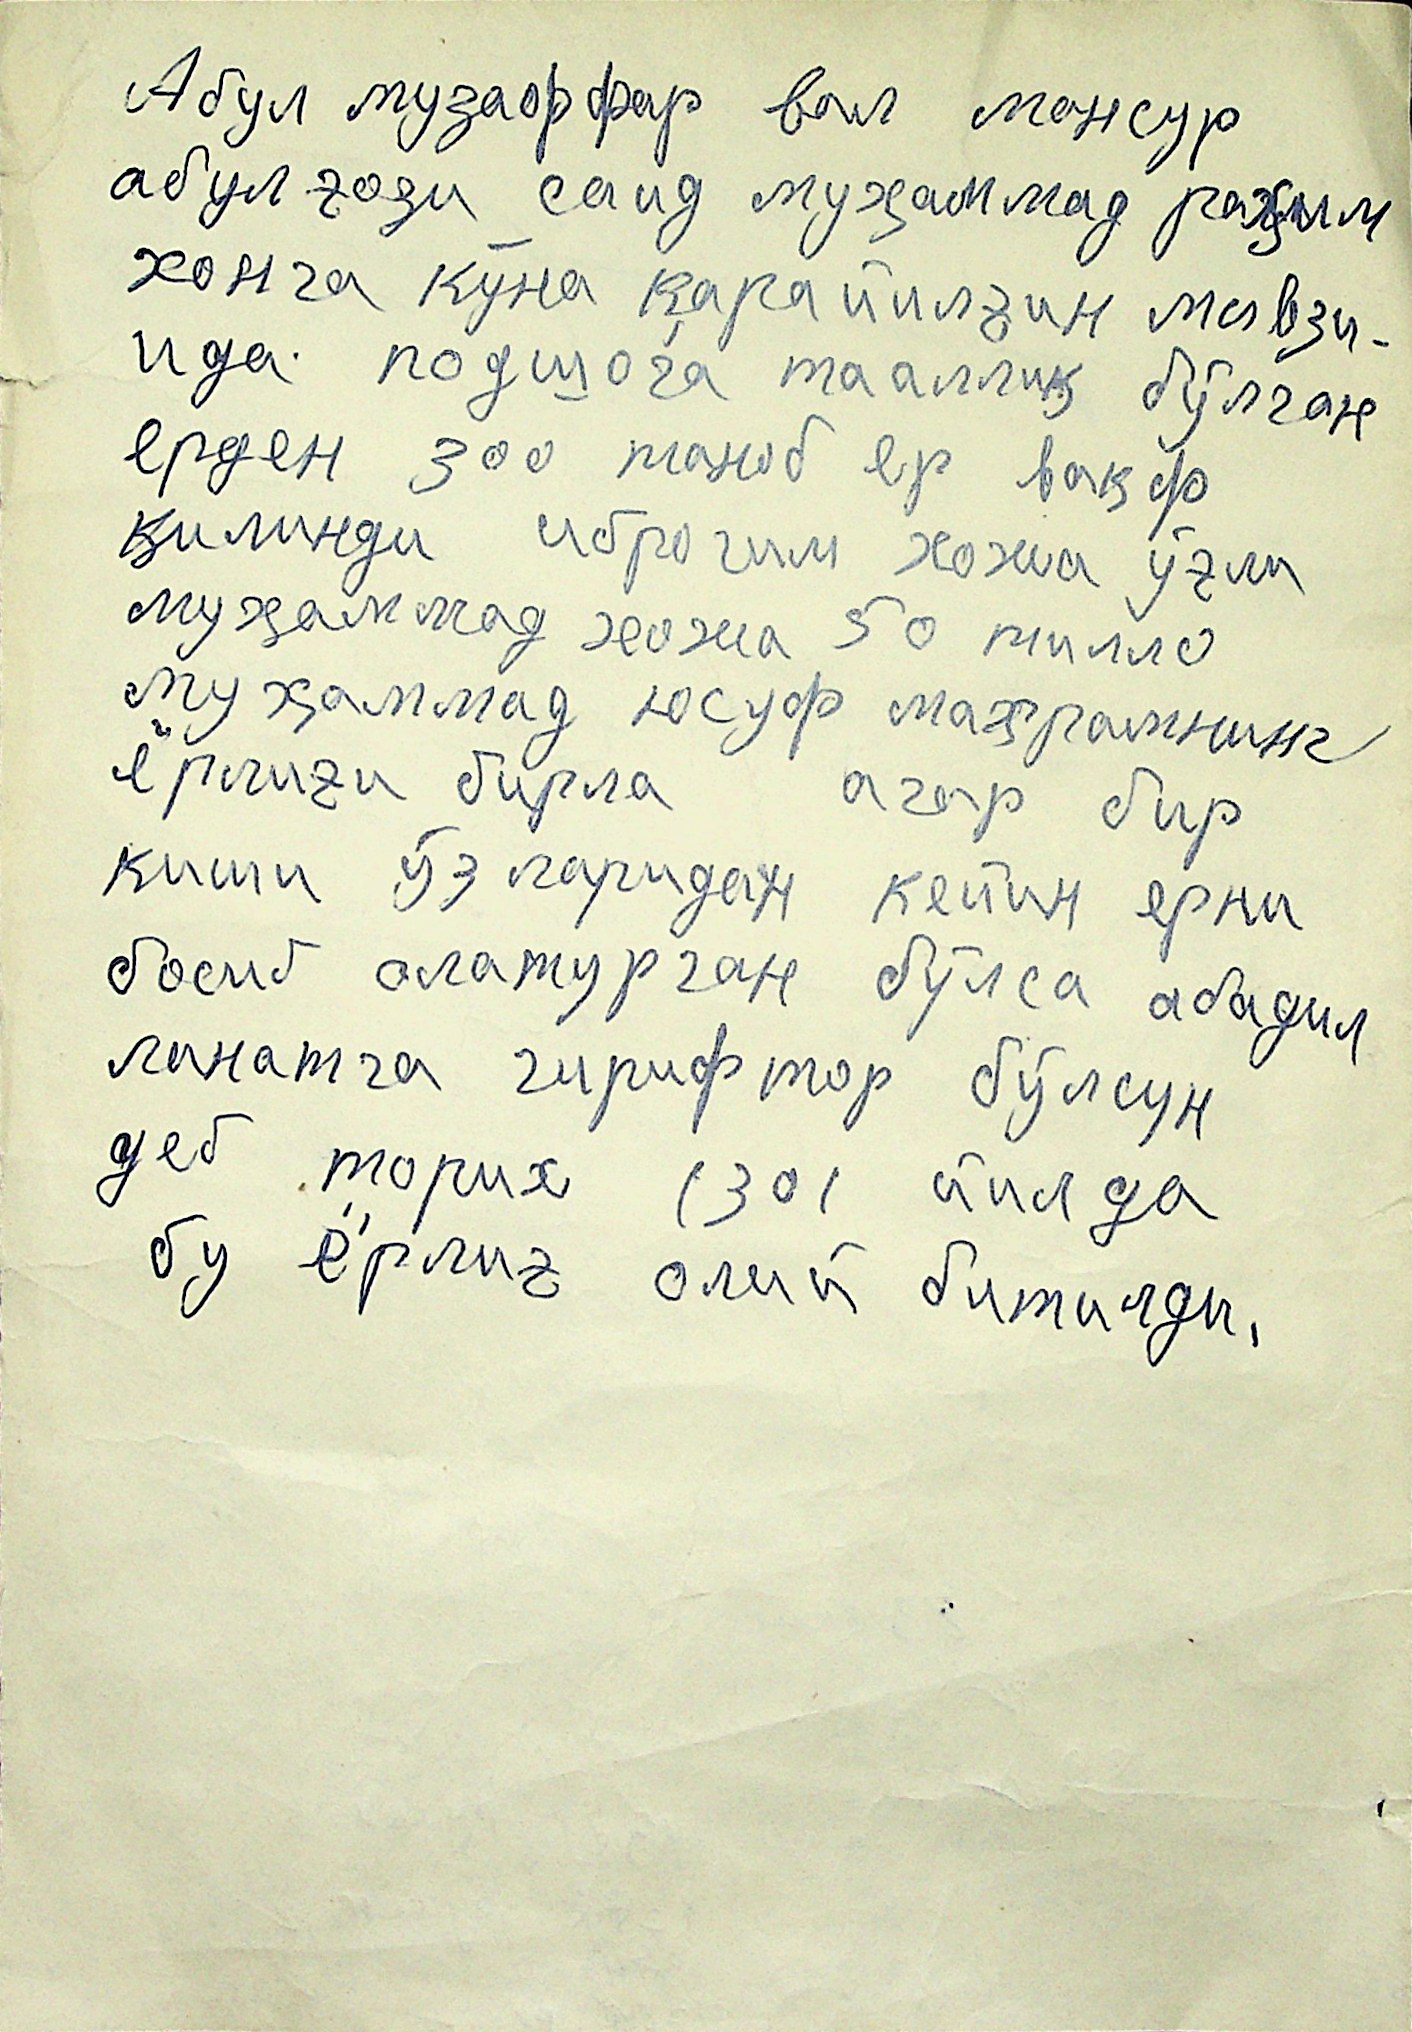 Абул музаффар вал мансур
абулғози саид муҳаммад раҳим
хонга кўна қарайилғин мавзи-
ида. подшоға тааллиқ бўлган
ерден 300 таноб ер вақф
қилинди иброгим хожа ўғли
муҳаммад хожа 50 тилло
муҳаммад юсуф маҳрамнинг
ёрлиғи бирла агар бир
киши ўзларидан кейин ерни
босиб олатурган бўлса абадил
ланатга гирифтор бўлсун
деб торих 1301 йилда
бу ёрлиғ олий битилди,